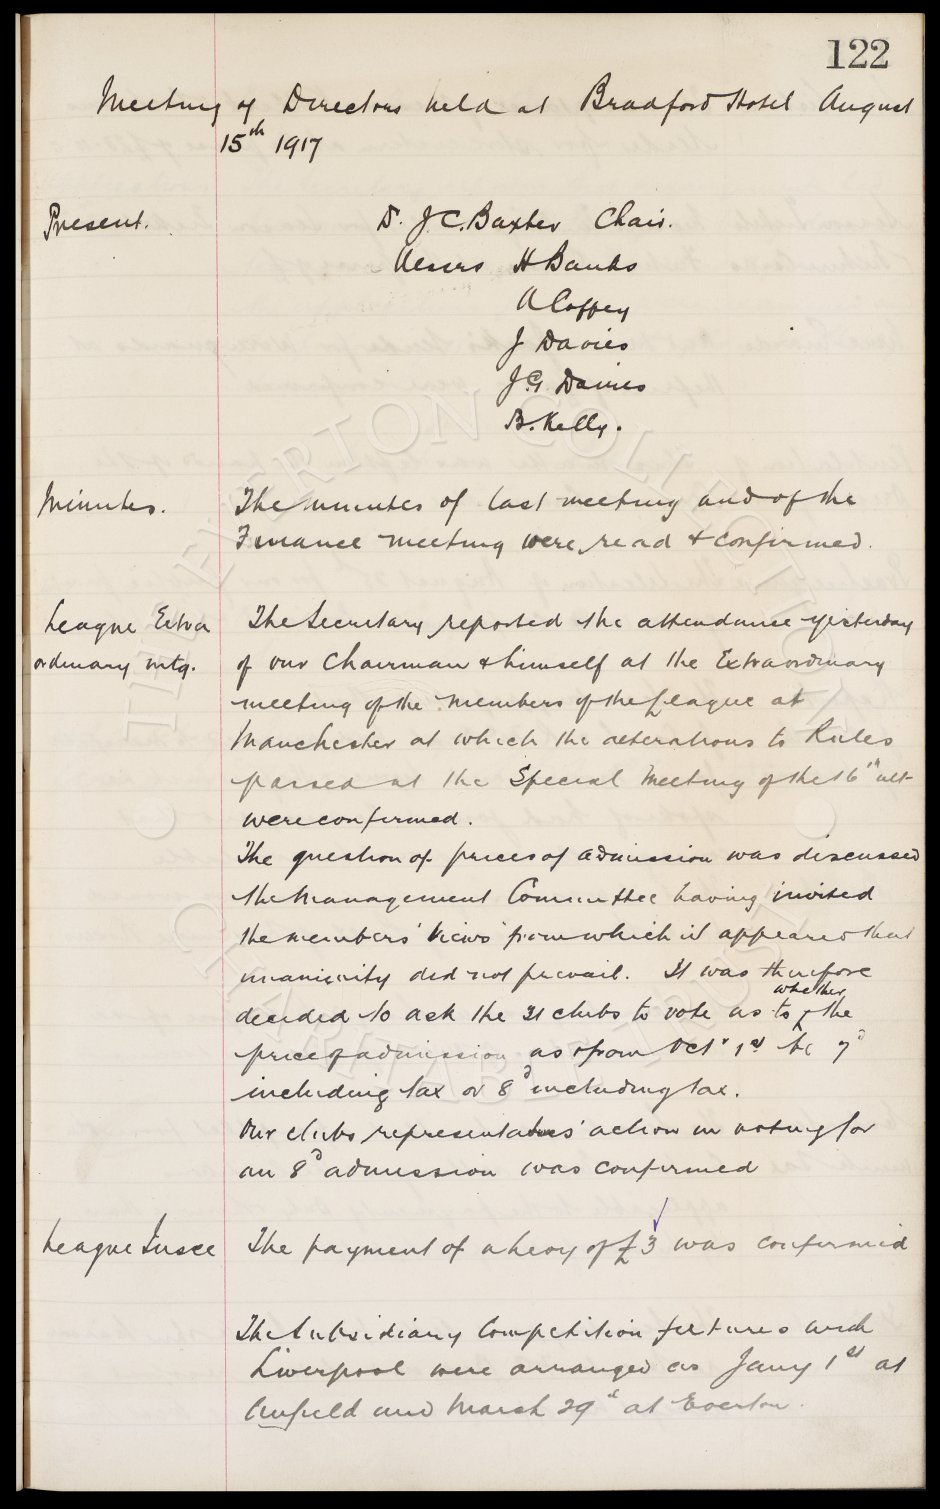 122
Meeting of Directors held at Bradford Hotel August
15th 1917
Present. Dr. J.C. Baxter Chair.
Messrs H Banks
A Coffey
J Davies
J.G. Davies
B. Kelly.
Minutes. The minutes of last meeting and of the
Finance meeting were read & confirmed.
League Extra The Secretary reported the attendance yesterday
ordinary mtg. of our Chairman & himself at the Extraordinary
meeting of the members of the League at
Manchester at which the alterations to Rules
passed at the Special Meeting of the 16th ult
were confirmed.
The question of prices of admission was discussed
the Management Committee having invited
the members' views from which it appeared that
unanimity did not prevail. It was therefore
decided to ask the 21 clubs to vote as to whether the
price of admission as from Octr 1st be 7d
including tax or 8d including tax.
Our clubs representatives' action in voting for
an 8d admission was confirmed
League Insce The payment of a levy of £3 was confirmed
The Subsidiary Competition fixtures with
Liverpool were arranged as Jany 1st at
Anfield and March 29th at Everton.
THE EVERTON COLLECTION CHARITABLE TRUST